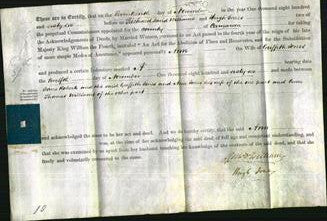 These are to Certify, that on the day of November in the Year One thousand eight hundred
and sixty six before us Richard David Williams and Hugh Jones two of
the perpetual Commissioners appointed for the county of Carnarvon for taking
the Acknowledgments of Deeds by Married Women, pursuant to an Act passed in the fourth year of the reign of his late
Majesty King William the Fourth, intituled "An Act for the Abolition of Fines and Recoveries, and for the Substitution
of more simple Modes of Assurance," appeared personally Ann the Wife of Griffith Jones
and produced a certain Indenture marked A bearing date
the twelfth of November One thousand eight hundred and sixty six and made between
the said Griffith Jones and Ann Jones his wife of the and
Thomas Williams of the other part
and acknowledged the same to be her act and deed. And we do hereby certify, that the said Ann
was, at the time of her acknowledging the said deed, of full age and competent understanding, and
that she was examined by us apart from her husband, touching her knowledge of the contents of the said deed, and that she
freely and voluntarily consented to the same.
Williams
Hugh Jones